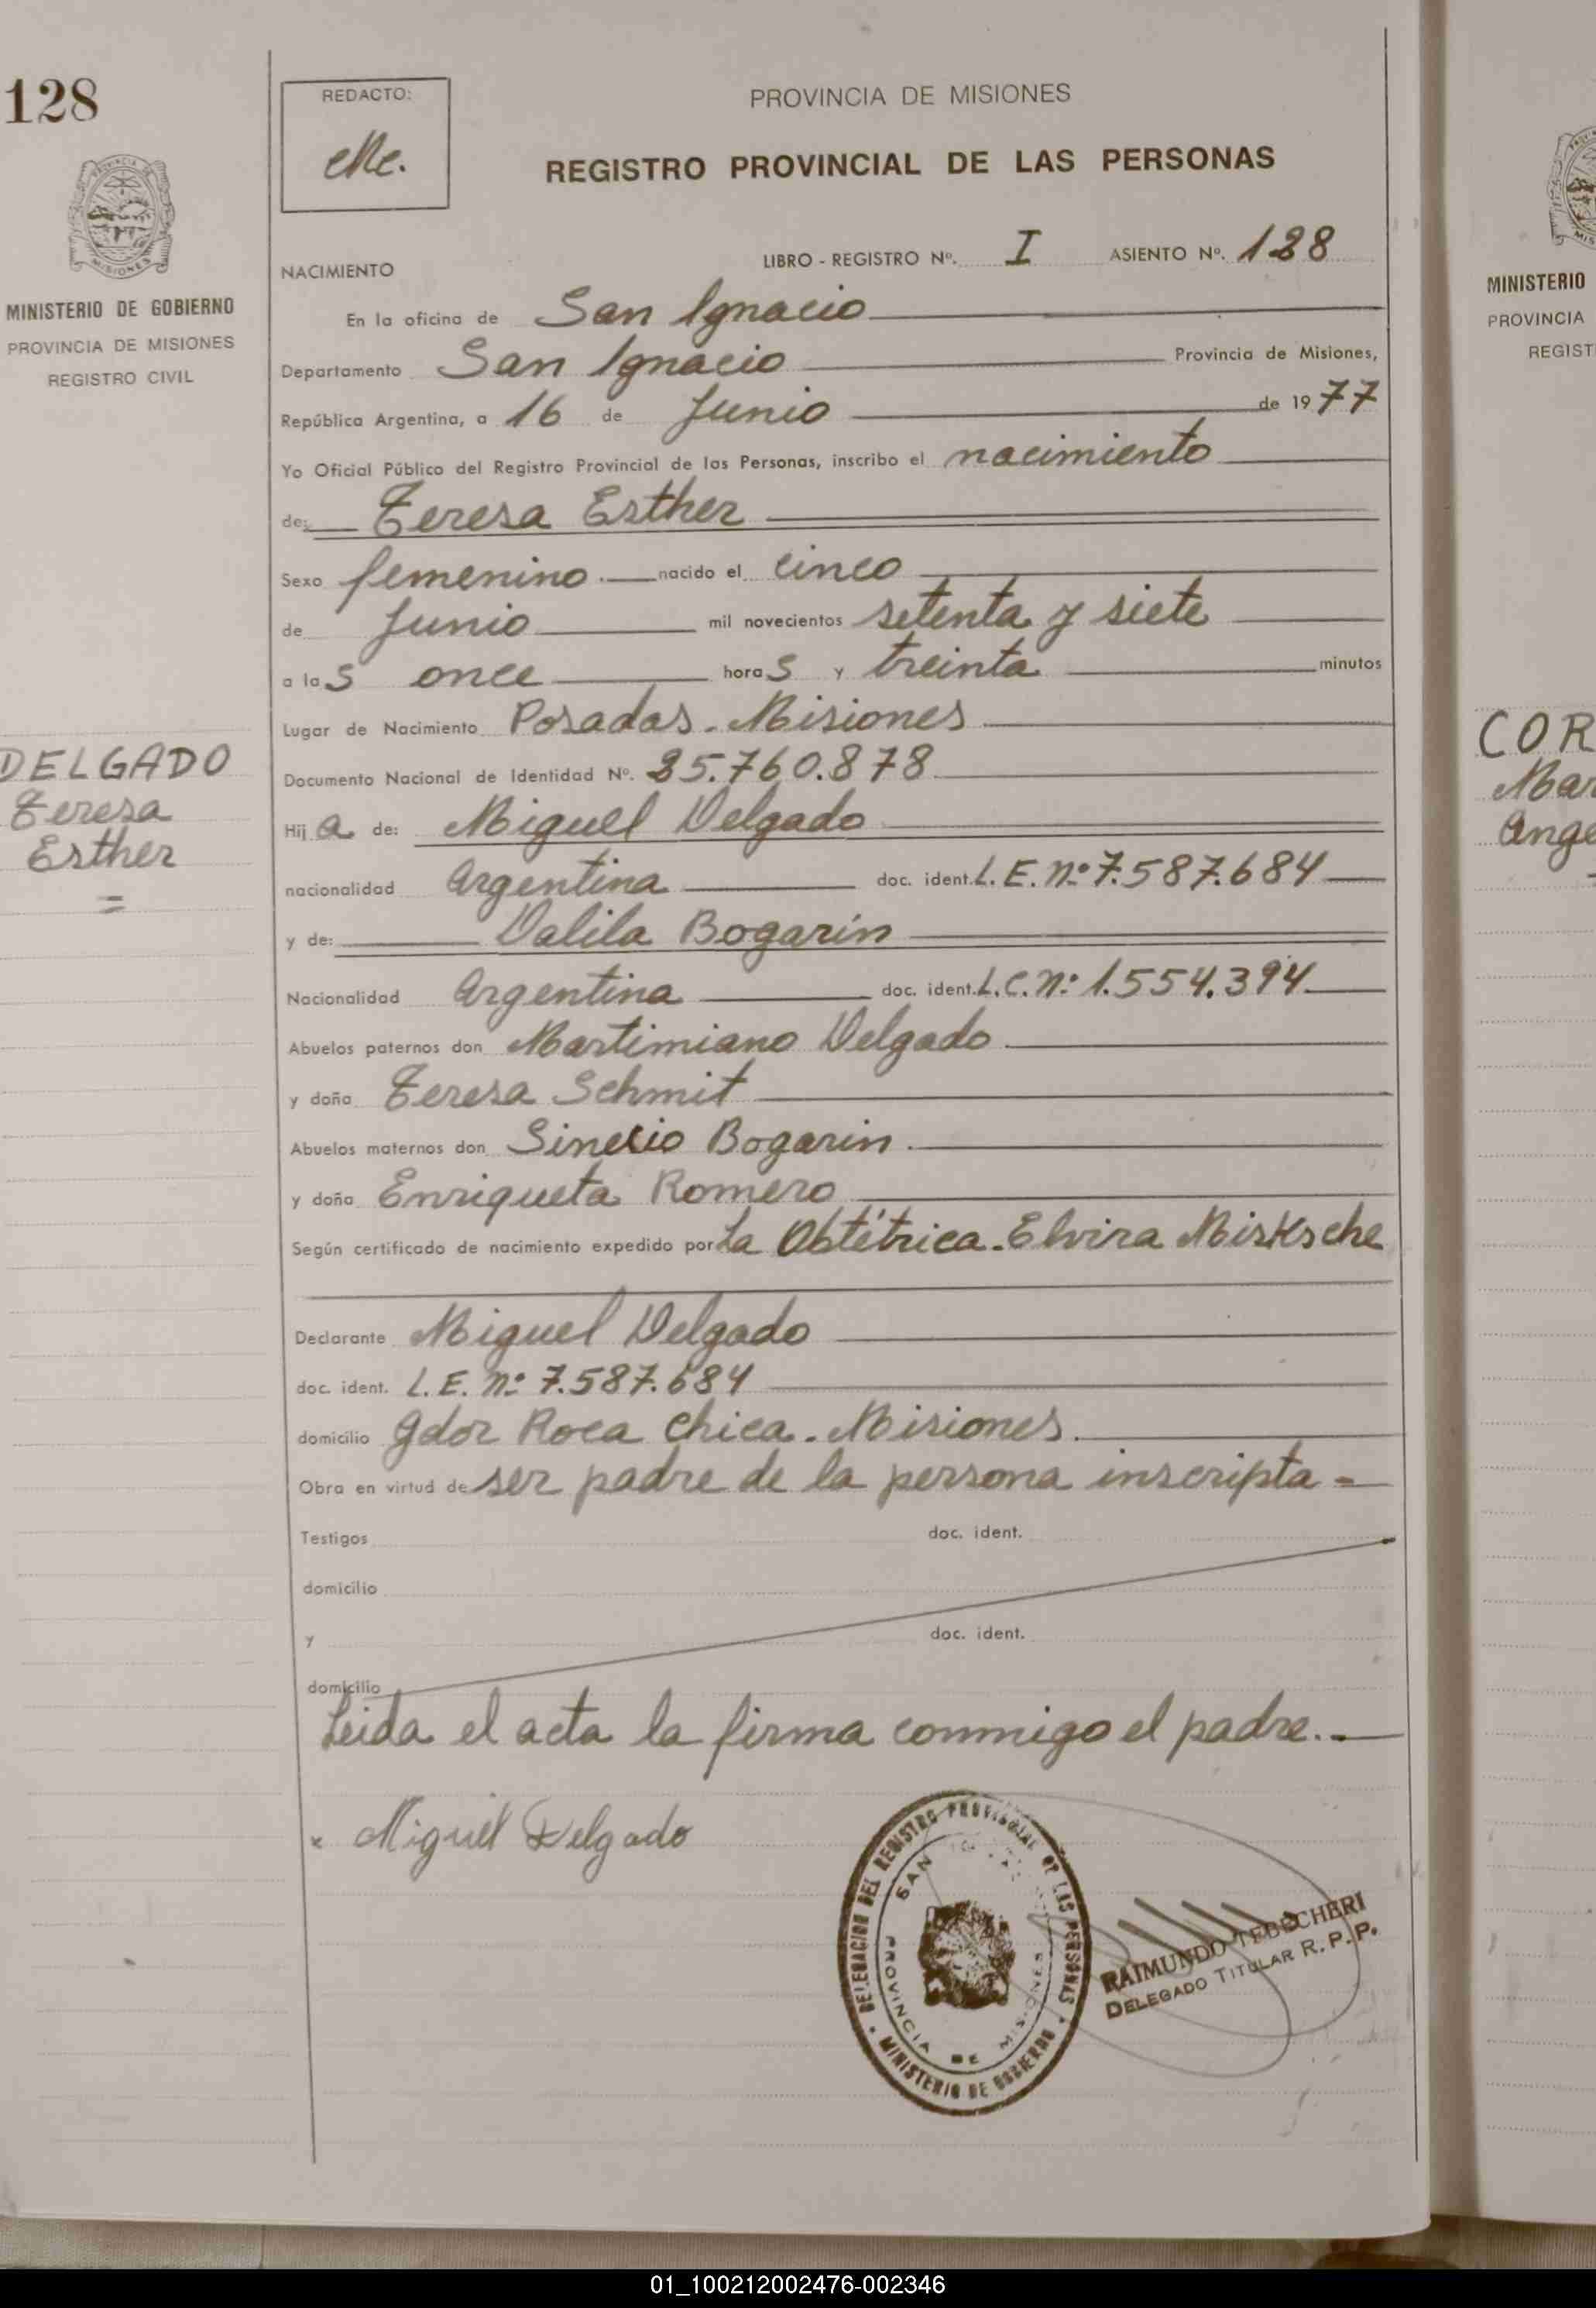 128
PROVINCIA DE MISIONES
MINISTERIO DE GOBIERNO
PROVINCIA DE MISIONES
REGISTRO CIVIL
DELGADO
Teresa
Esther
=
REDACTO:
PROVINCIA DE MISIONES
REGISTRO PROVINCIAL DE LAS PERSONAS
NACIMIENTO
LIBRO - REGISTRO Nº. I ASIENTO Nº. 128
En la oficina de San Ignacio
Departamento San Ignacio Provincia de Misiones,
República Argentina, a 16 de Junio de 1977
Yo Oficial Público del Registro Provincial de las Personas, inscribo el nacimiento
de: Teresa Esther
Sexo femenino. nacido el cinco
de Junio mil novecientos setenta y siete
a las once horas y treinta minutos
Lugar de Nacimiento Posadas. Misiones
Documento Nacional de Identidad Nº. 25.760.878
Hija de: Miguel Delgado
nacionalidad Argentina doc. ident. L.E. nº 7.587.684
y de: Dalila Bogarín
Nacionalidad Argentina doc. ident. L.C. nº 1.554.394
Abuelos paternos don Martimiano Delgado
y doña Teresa Schmit
Abuelos maternos don Sinecio Bogarin.
y doña Enriqueta Romero
Según certificado de nacimiento expedido por La Obtétrica. Elvira
Declarante Miguel Delgado
doc. ident. L.E. nº 7.587.684
domicilio Gdor Roca Chica. Misiones.
Obra en virtud de ser padre de la persona inscripta =
Testigos doc. ident.
domicilio
y doc. ident.
domicilio
Leida el acta la firma conmigo el padre..
x Miguel Delgado
DELEGACION DEL REGISTRO PROVINCIAL DE LAS PERSONAS
MINISTERIO DE GOBIERNO
SAN
PROVINCIA DE MISIONES
RAIMUNDO TEDOCHERI
DELEGADO TITULAR R.P.P.
MINISTERIO
PROVINCIA
REGIST
COR
Mar
Ange
01_100212002476-002346